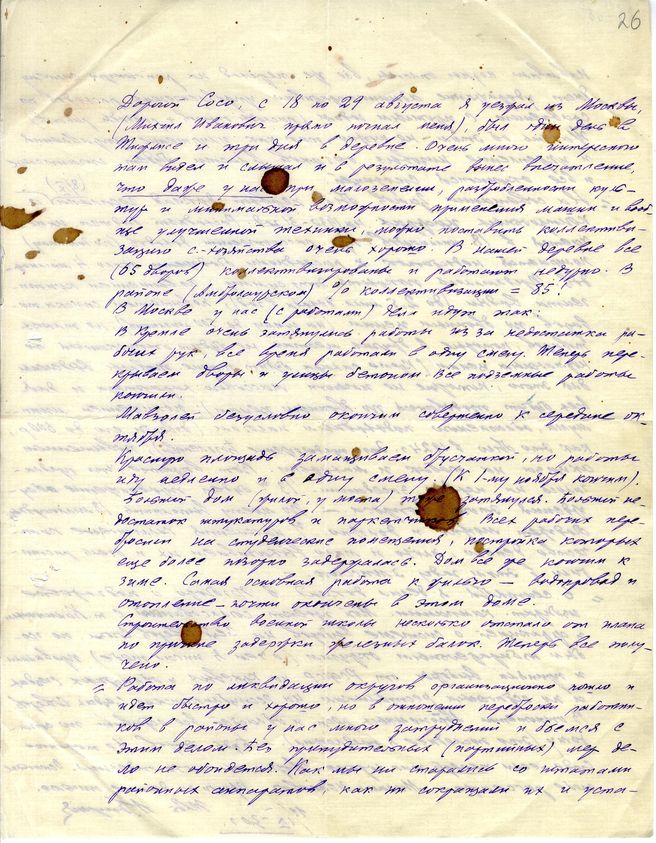 26
Дорогой Сосо, с 18 по 29 августа я уезжал из Москвы
(Михаил Иванович прямо погнал меня), был один день в
Тифлисе и три дня в деревне. Очень много интересного
там видел и слышал и в результате вынес впечатление,
что даже у нас при малоземелии, раздробленности куль-
тур и минимальной возможности применения машин и вооб-
ще улучшенной техники, можно поставить коллективи-
зацию с.-хозяйства очень хорошо. В нашей деревне все
(65 дворов) коллективизированы и работают недурно. В
районе (Амбролаурском) % коллективизации = 85!
В Москве у нас (с работами) дела идут так:
В Кремле очень затянулись работы из за недостатка ра-
бочих рук, все время работали в одну смену. Теперь пере-
крываем дворы и улицы бетоном. Все подземные работы
кончили.
Мавзолей безусловно окончим совершенно к середине ок-
тября.
Красную площадь замащиваем брусчаткой, но работы
иду медленно и в одну смену. (К 1-му ноября кончим).
Большой дом (жилой, у моста) тоже затянулся. Большой не-
достаток штукатуров и паркетчиков. Всех рабочих пере-
бросили на студенческие помещения, постройка которых
еще более позорно задержалась. Дом все же кончим к
зиме. Самая основная работа к жилью — водопровод и
отопление — почти окончены в этом доме.
Строительство военной школы несколько отстало от плана
по причине задержки железных балок. Теперь все полу-
чено.
= Работа по ликвидации округов организационно пошло и
идет быстро и хорошо, но в отношении переброски работни-
ков в районы у нас много затруднений и бьемся с
этим делом. Без принудительных (партийных) мер де-
ло не обойдется. Как мы ни старались со штатами
районных аппаратов, как ни сокращали их и уста-